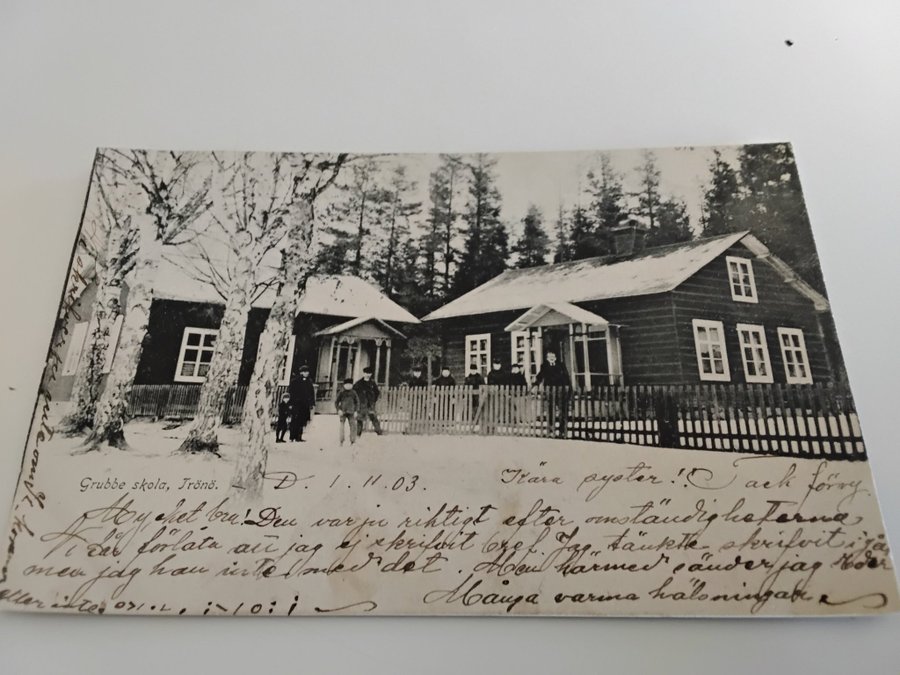 Grubbe skola, Trönö.
D. 1.11.03. Kära syster!! Tack för vy.
Mycket bra! Den var ju riktigt efter omständigheterna
förlåta att jag ej skrifvit bref. Jag tänkte skrifvit igår
men jag han inte med det. Men härmed sänder jag Eder
Många varma hälsningar